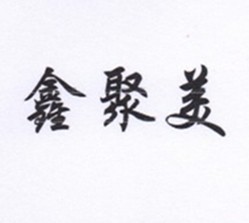 鑫聚美